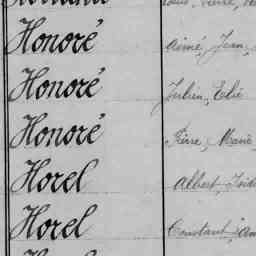 Honoré Aimé, Jean,
Honoré Julien, Élie
Honoré Pierre, Marie
Horel Albert, Isid
Horel Constant, Am